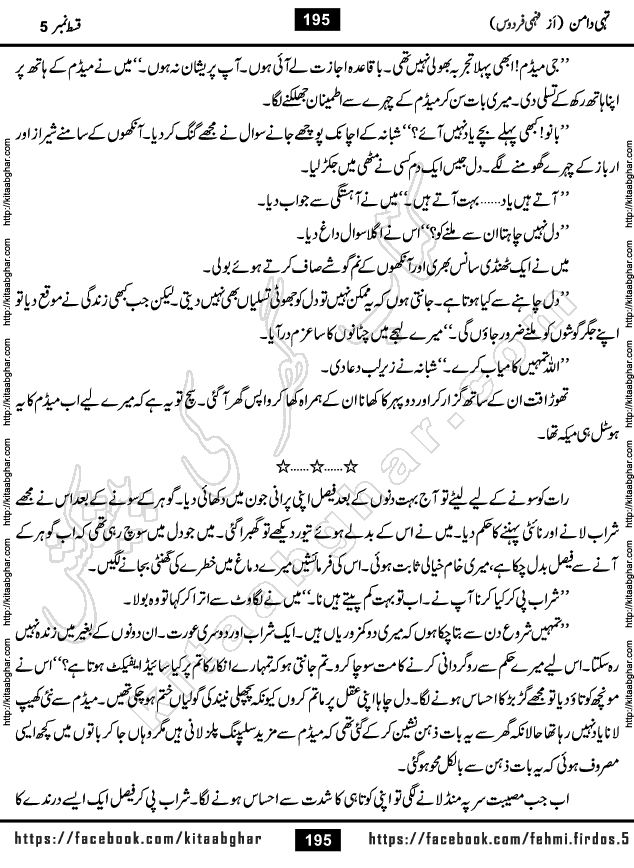 قسط نمبر 5
195
تہی دامن (از فہمی فردوس)
’’جی میڈم! ابھی پہلا تجربہ بھولی نہیں تھی۔ باقاعدہ اجازت لے آئی ہوں۔ آپ پریشان نہ ہوں۔‘‘ میں نے میڈم کے ہاتھ پر
اپنا ہاتھ رکھ کے تسلی دی۔ میری بات سن کر میڈم کے چہرے سے اطمینان جھلکنے لگا۔
’’بانو! کبھی پہلے بچے یاد نہیں آئے؟‘‘ شبانہ کے اچانک پوچھے جانے سوال نے مجھے گنگ کر دیا۔ آنکھوں کے سامنے شیراز اور
ارباز کے چہرے گھومنے لگے۔ دل جیس ایک دم کسی نے مٹھی میں جکڑ لیا۔
’’آتے ہیں یاد...... بہت آتے ہیں۔‘‘ میں نے آہستگی سے جواب دیا۔
’’دل نہیں چاہتا ان سے ملنے کو؟‘‘ اس نے اگلا سوال داغ دیا۔
میں نے ایک ٹھنڈی سانس بھری اور آنکھوں کے نم گوشے صاف کرتے ہوئے بولی۔
’’دل چاہنے سے کیا ہوتا ہے۔ جانتی ہوں کہ یہ ممکن نہیں تو دل کو جھوٹی تسلیاں بھی نہیں دیتی۔ لیکن جب کبھی زندگی نے موقع دیا تو
اپنے جگر گوشوں کو ملنے ضرور جاؤں گی۔‘‘ میرے لہجے میں چٹانوں کا سا عزم در آیا۔
’’اللہ تمہیں کامیاب کرے۔‘‘ شبانہ نے زیرِ لب دعا دی۔
تھوڑا وقت ان کے ساتھ گزار کر اور دوپہر کا کھانا ان کے ہمراہ کھا کر واپس گھر آ گئی۔ سچ تو یہ ہے کہ میرے لیے اب میڈم کا یہ
ہوسٹل ہی میکہ تھا۔
☆......☆......☆
رات کو سونے کے لیے لیٹے تو آج بہت دنوں کے بعد فیصل اپنی پرانی جون میں دکھائی دیا۔ گوہر کے سونے کے بعد اس نے مجھے
شراب لانے اور نائٹی پہننے کا حکم دیا۔ میں نے اس کے بدلے ہوئے تیور دیکھے تو گھبرا گئی۔ میں جو دل میں سوچ رہی تھی کہ اب گوہر کے
آنے سے فیصل بدل چکا ہے، میری خام خیالی ثابت ہوئی۔ اس کی فرمائشیں میرے دماغ میں خطرے کی گھنٹی بجانے لگیں۔
’’شراب پی کر کیا کرنا آپ نے۔ اب تو بہت کم پیتے ہیں نا۔‘‘ میں نے لگاوٹ سے اترا کر کہا تو وہ بولا۔
’’تمہیں شروع دن سے بتا چکا ہوں کہ میری دو کمزوریاں ہیں۔ ایک شراب اور دوسری عورت۔ ان دونوں کے بغیر میں زندہ نہیں
رہ سکتا۔ اس لیے میرے حکم سے روگردانی کرنے کا مت سوچا کرو۔ تم جانتی ہو کہ تمہارے انکار کا تم پر کیا سائیڈ ایفیکٹ ہوتا ہے؟‘‘ اس نے
مونچھ کو تاؤ دیا تو مجھے گڑبڑ کا احساس ہونے لگا۔ دل چاہا اپنی عقل پر ماتم کروں کیونکہ پچھلی نیند کی گولیاں ختم ہو چکی تھیں۔ میڈم سے نئی کھیپ
لانا یاد نہیں رہا تھا حالانکہ گھر سے یہ بات ذہن نشین کر کے گئی تھی کہ میڈم سے مزید سلیپنگ پلز لانی ہیں مگر وہاں جا کر باتوں میں کچھ ایسی
مصروف ہوئی کہ یہ بات ذہن سے بالکل محو ہو گئی۔
اب جب مصیبت سر پہ منڈلانے لگی تو اپنی کوتاہی کا شدت سے احساس ہونے لگا۔ شراب پی کر فیصل ایک ایسے درندے کا
https://facebook.com/kitaabghar
195
https://facebook.com/fehmi.firdos.5
http://kitaabghar.com
http://kitaabghar.com
http://kitaabghar.com
http://kitaabghar.com
http://kitaabghar.com
http://kitaabghar.com
http://kitaabghar.com
http://kitaabghar.com
http://kitaabghar.com
http://kitaabghar.com
http://kitaabghar.com
http://kitaabghar.com
کتاب گھر کی پیشکش
kitaabghar.com